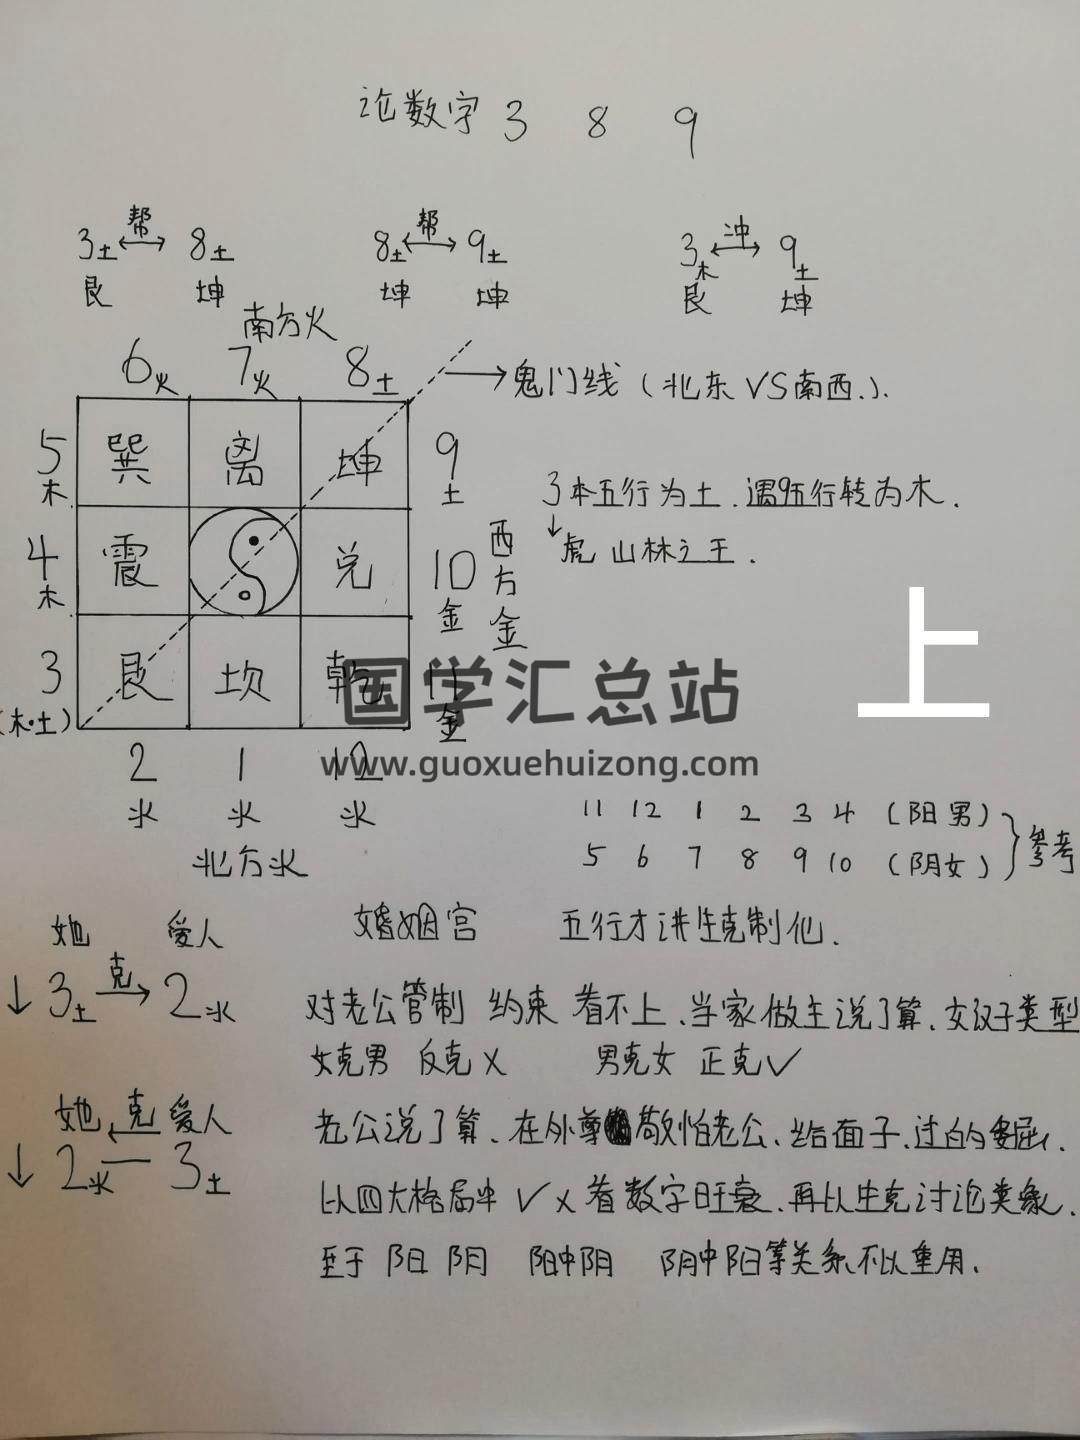 论数字 3 8 9
3土 帮 8土 8土 帮 9土 3木 冲 9土
艮 坤 坤 坤 艮 坤
南方火
6火 7火 8土
鬼门线 (北东 VS 南西.).
5木 巽 离 坤 9土
3本五行为土.遇9五行转为木.
虎 山林之王.
4木 震 兑 10金 西方金
上
3 艮 坎 乾 11金
(木·土)
国学汇总站
www.guoxuehuizong.com
2 1 12
水 水 水
北方水
11 12 1 2 3 4 (阳男)
5 6 7 8 9 10 (阴女)
参考
她 爱人 婚姻宫 五行才讲生克制化.
3土 克 2水 对老公管制 约束 看不上、当家做主说了算、女汉子类型
女克男 反克 X 男克女 正克✓
她 克 爱人 老公说了算、在外尊敬怕老公、给面子、过的委屈.
2水 3土 以四大格局中 ✓ X 看数字旺衰、再以生克讨论类象.
至于 阳 阴 阳中阴 阴中阳等关系不以重用.